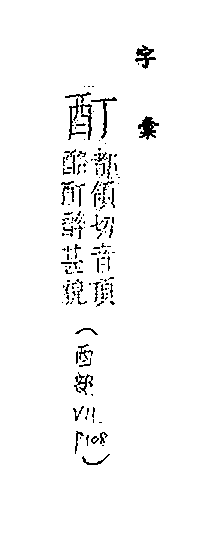 字彙
酊
都領切音頂
酩酊醉甚貌
(酉部 VII. P108)